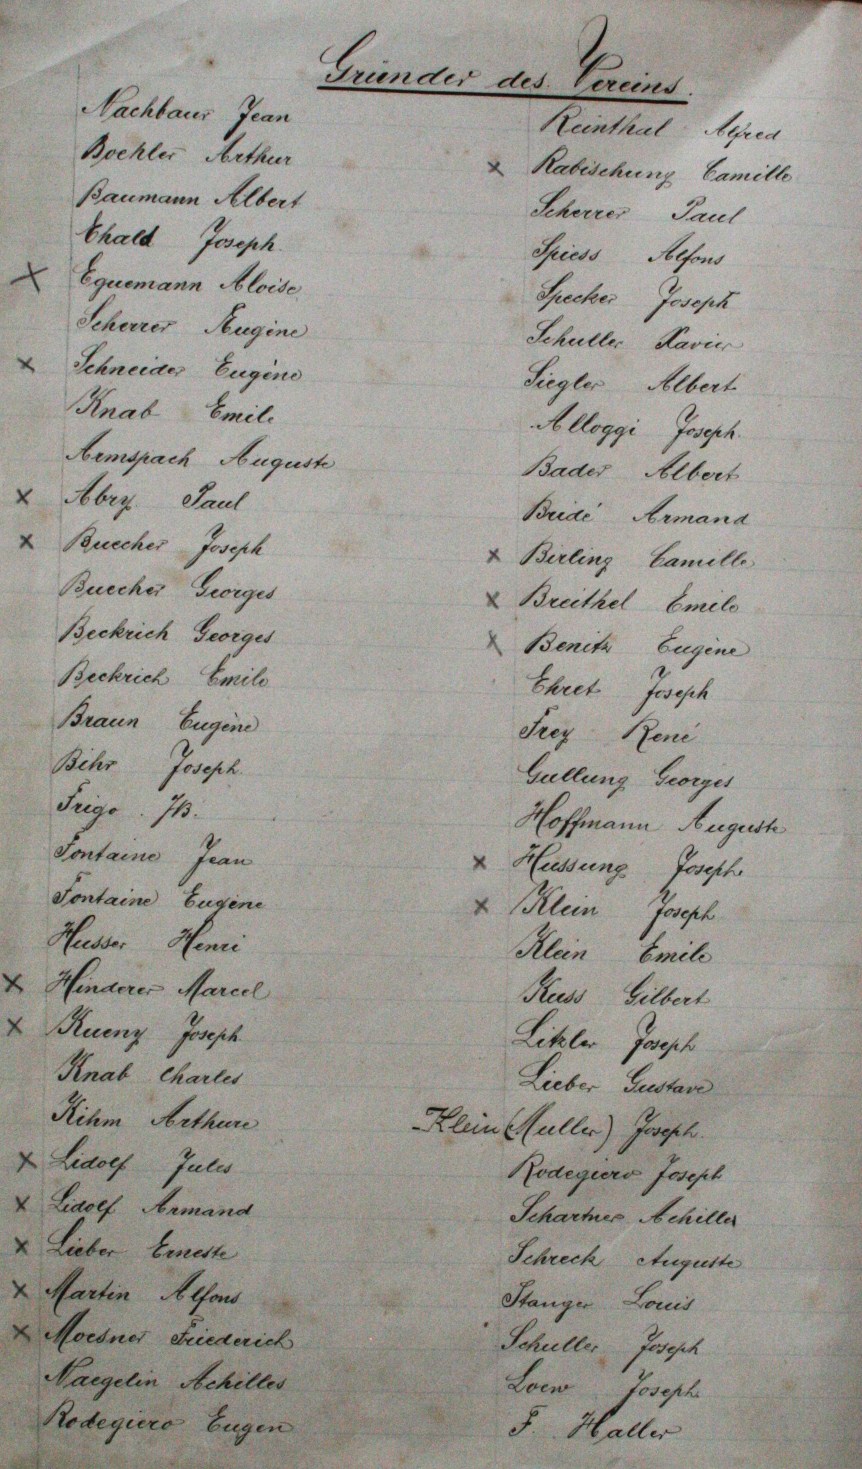 Gründer des Vereins.
Nachbaur Jean
Boehler Arthur
Baumann Albert
Ehald Joseph.
x Eguemann Aloise
Scherrer Eugène
x Schneider Eugène
Knab Emile
Armspach Auguste
x Abry Paul
x Buecher Joseph
Buecher Georges
Beckrich Georges
Beckrich Emile
Braun Eugène
Bihr Joseph
Frigo JB.
Fontaine Jean
Fontaine Eugène
Husser Henri
x Hinderer Marcel
x Kueny Joseph
Knab Charles
Kihm Arthure
x Lidolf Jules
x Lidolf Armand
x Lieber Erneste
x Martin Alfons
x Moesner Friederich
Naegelin Achilles
Rodegiero Eugen
Reinthal Alfred
x Rabischung Camille
Scherrer Paul
Spiess Alfons
Specker Joseph
Schuller Xavier
Siegler Albert
Alloggi Joseph.
Bader Albert
Bridé Armand
x Birling Camille
x Breithel Emile
x Benitz Eugène
Ehret Joseph
Frey René
Gullung Georges
Hoffmann Auguste
x Hussung Joseph
x Klein Joseph
Klein Emile
Kuss Gilbert
Litzler Joseph
Lieber Gustave
-Klein (Muller) Joseph.
Rodegiero Joseph
Schartner Achilles
Schreck Auguste
Stanger Louis
Schuller Joseph
Loew Joseph
F. Haller